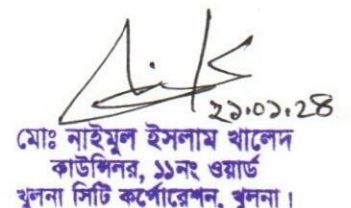 ২১.০১.২৪
মোঃ নাইমুল ইসলাম খালেদ
কাউন্সিলর, ১১নং ওয়ার্ড
খুলনা সিটি কর্পোরেশন, খুলনা।